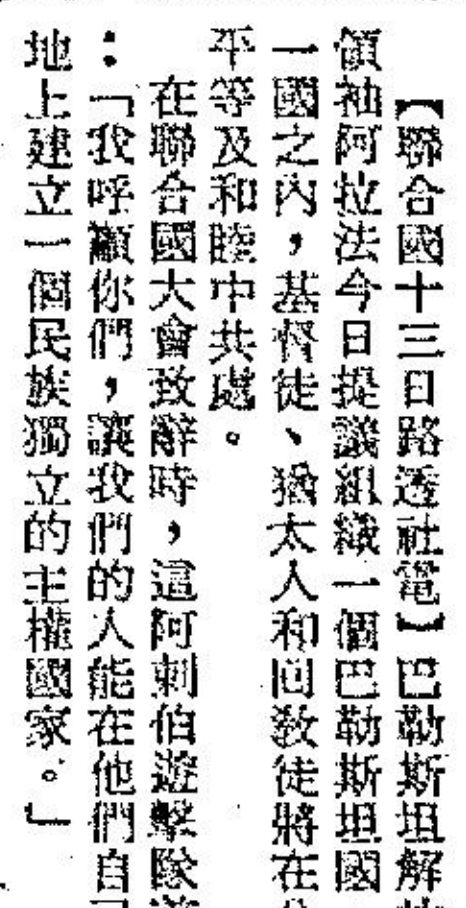 【聯合國十三日路透社電】巴勒斯坦解
領袖阿拉法今日提議組織一個巴勒斯坦國
一國之內，基督徒、猶太人和回敎徒將在
平等及和睦中共處。
在聯合國大會致辭時，這阿剌伯遊擊隊
：「我呼籲你們，讓我們的人能在他們自
地上建立一個民族獨立的主權國家。」